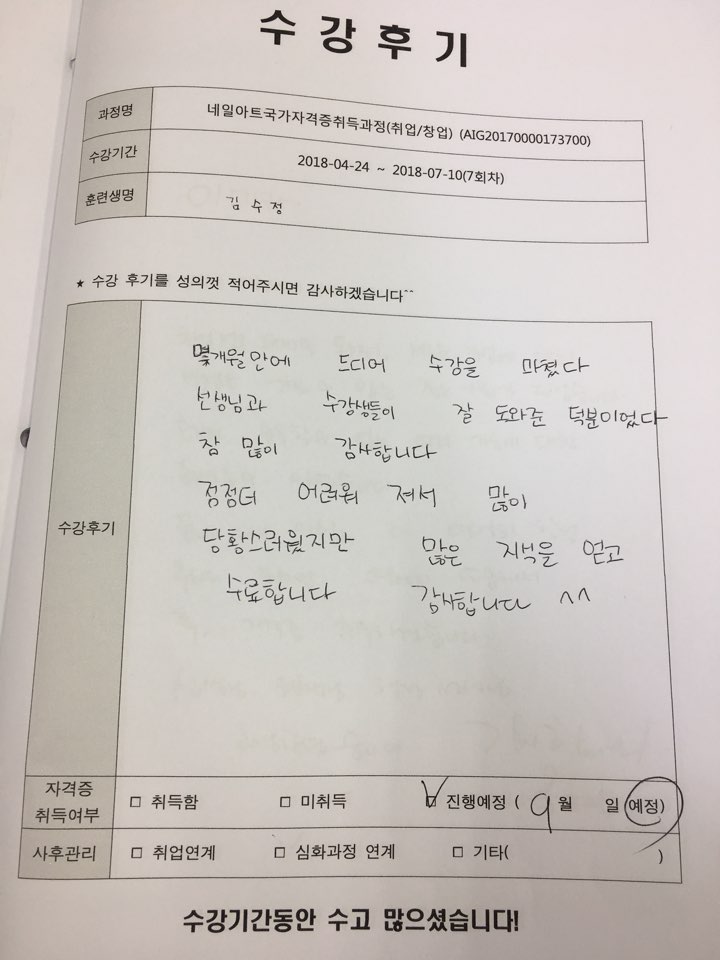 수강후기
과정명 네일아트국가자격증취득과정(취업/창업) (AIG20170000173700)
수강기간 2018-04-24 ~ 2018-07-10(7회차)
훈련생명 김수정
★ 수강 후기를 성의껏 적어주시면 감사하겠습니다^^
몇개월만에 드디어 수강을 마쳤다
선생님과 수강생들이 잘 도와준 덕분이었다
참 많이 감사합니다
점점더 어려워 져서 많이
수강후기
당황스러웠지만 많은 지식을 얻고
수료합니다 감사합니다 ^^
자격증 취득여부 □ 취득함 □ 미취득 ☑ 진행예정 ( 9월 일 예정)
사후관리 □ 취업연계 □ 심화과정 연계 □ 기타( )
수강기간동안 수고 많으셨습니다!